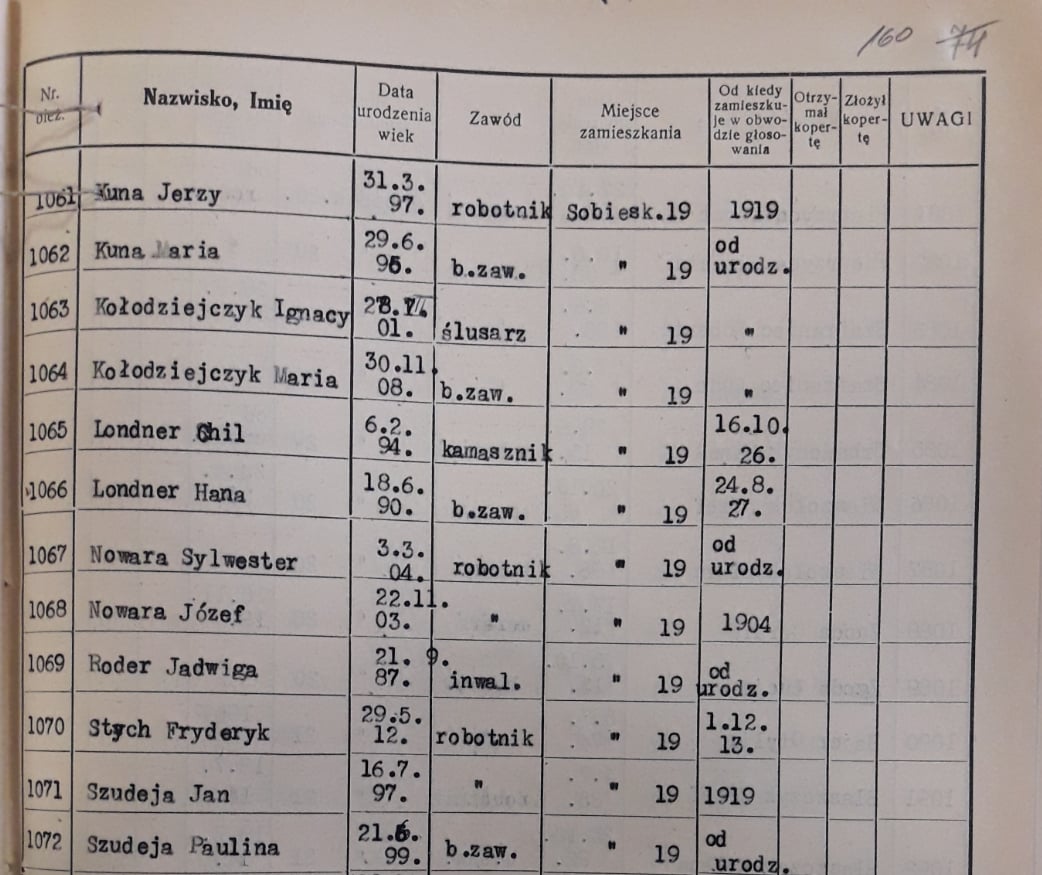 160 74
Nr. bież. Nazwisko, Imię Data urodzenia wiek Zawód Miejsce zamieszkania Od kiedy zamieszku-je w obwo-dzie głoso-wania Otrzy-mał koper-tę Złożył koper-tę UWAGI
1061 Kuna Jerzy 31.3. 97. robotnik Sobiesk.19 1919
1062 Kuna Maria 29.6. 96. b.zaw. " 19 od urodz.
1063 Kołodziejczyk Ignacy 01. ślusarz " 19 "
1064 Kołodziejczyk Maria 30.11. 08. b.zaw. " 19 "
1065 Londner Chil 6.2. 94. kamasznik " 19 16.10. 26.
1066 Londner Hana 18.6. 90. b.zaw. " 19 24.8. 27.
1067 Nowara Sylwester 3.3. 04. robotnik " 19 od urodz.
1068 Nowara Józef 22.11. 03. " " 19 1904
1069 Roder Jadwiga 21. 9. 87. inwal. " 19 od urodz.
1070 Stych Fryderyk 29.5. 12. robotnik " 19 1.12. 13.
1071 Szudeja Jan 16.7. 97. " " 19 1919
1072 Szudeja Paulina 21.6. 99. b.zaw. " 19 od urodz.